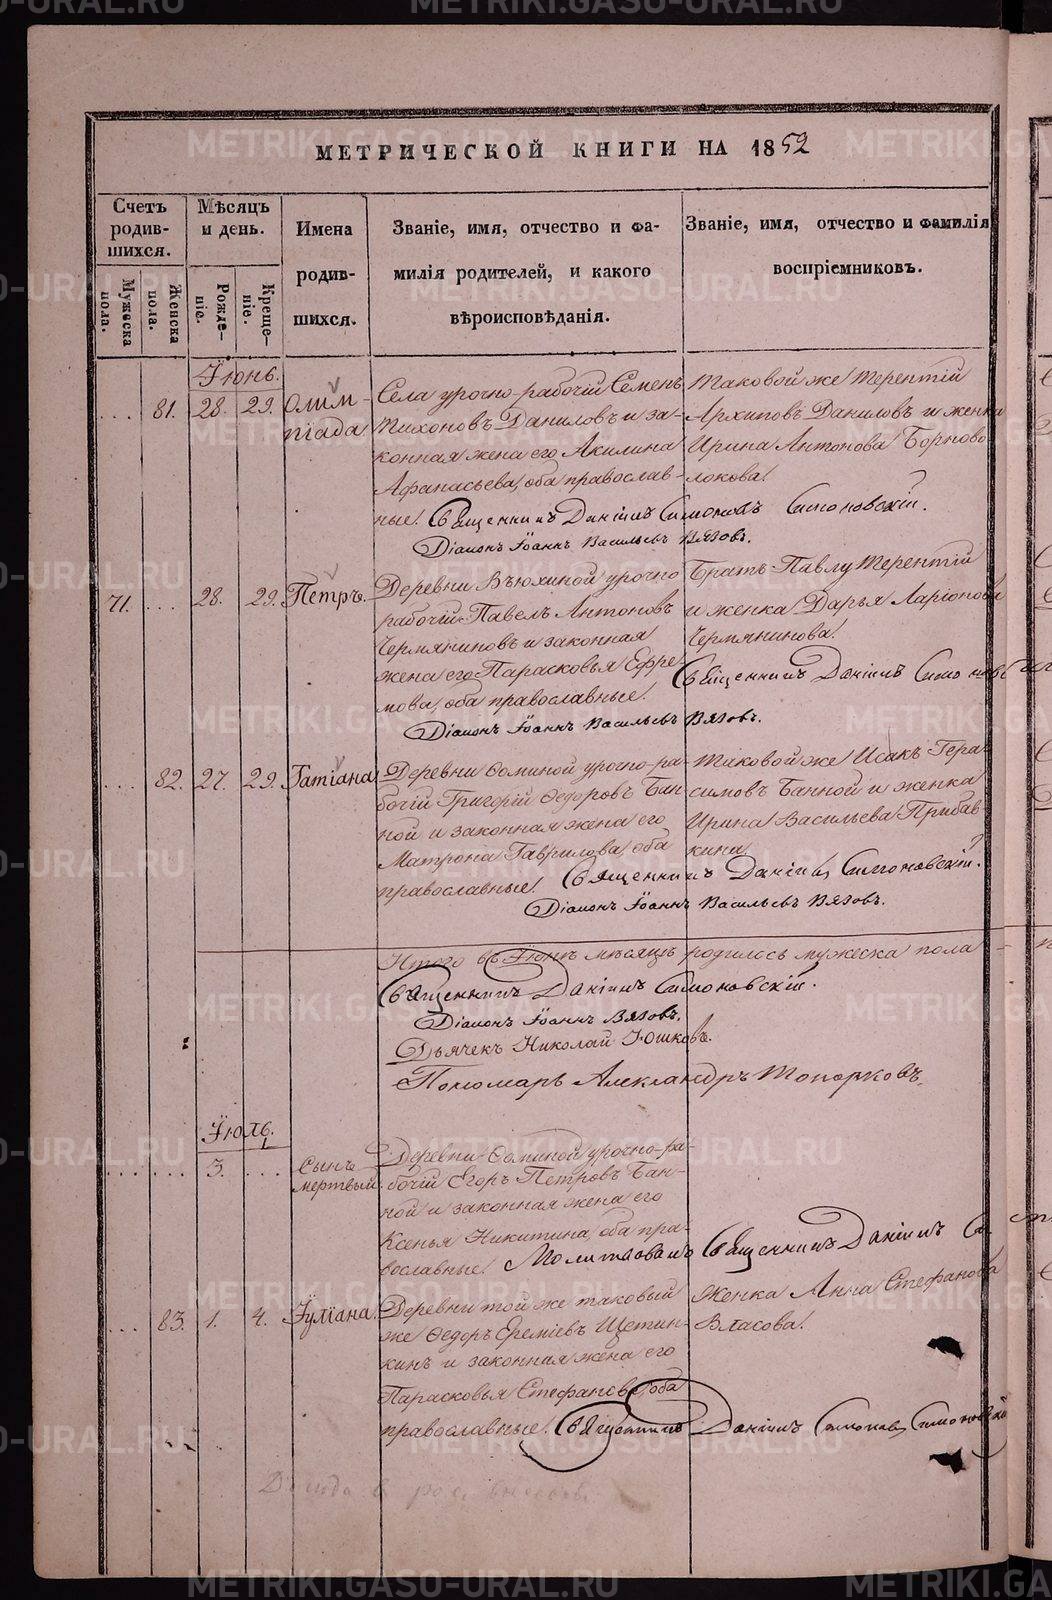 МЕТРИЧЕСКОЙ КНИГИ НА 1852
Счетъ родившихся.
Мѣсяцъ и день.
Имена родившихся.
Званіе, имя, отчество и фамилія родителей, и какого вѣроисповѣданія.
Званіе, имя, отчество и фамилія воспріемниковъ.
Мужеска пола.
Женска пола.
Рожденіе.
Крещеніе.
Їюнь.
... 81. 28. 29. Олимпіада
Села урочно-рабочій Семенъ
Тихоновъ Даниловъ и за-
конная жена его Акилина
Афанасьева, оба православ-
ные.
Таковой же Терентій
Архиповъ Даниловъ и женка
Ирина Антонова Борново-
локова.
Священникъ Даніилъ Симоновъ Симоновскій.
Діаконъ Їоаннъ Васильевъ Вязовъ.
71. ... 28. 29. Петръ.
Деревни Вьюхиной урочно
рабочій Павелъ Антоновъ
Чермяниновъ и законная
жена его Парасковья Ефре-
мова, оба православные.
Братъ Павлу Терентій
и женка Дарья Ларіонова
Чермянинова.
Священникъ Даніилъ
Діаконъ Їоаннъ Васильевъ Вязовъ.
... 82. 27. 29. Татіана
Деревни Ѳоминой урочно-ра-
бочій Григорій Ѳедоровъ Бан-
ной и законная жена его
Матрона Гаврилова, оба
православные.
Таковой же Исакъ Гера-
симовъ Банной и женка
Ирина Васильева Прибав-
кина.
Священникъ Даніилъ Симоновскій.
Діаконъ Їоаннъ Васильевъ Вязовъ.
Итого въ Їюнѣ мѣсяцѣ родилось мужеска пола
Священникъ Даніилъ Симоновскій.
Діаконъ Їоаннъ Вязовъ.
Дьячекъ Николай Юшковъ.
Пономарь Александръ Топорковъ.
Їюль.
... ... 3. ... Сынъ мертвый.
Деревни Ѳоминой урочно-ра-
бочій Егоръ Петровъ Бан-
ной и законная жена его
Ксенья Никитина, оба пра-
вославные.
Молитвовалъ Священникъ Даніилъ
... 83. 1. 4. Їуліана.
Деревни той же таковый
же Ѳедоръ Ереміевъ Щетин-
кинъ и законная жена его
Парасковья Стефанова, оба
православные.
Женка Анна Стефанова
Власова.
Священникъ Даніилъ Симоновъ Симоновскій
METRIKI.GASO-URAL.RU